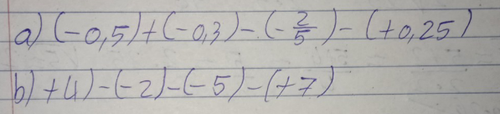 a) (-0,5)+(-0,3)-(-2/5)-(+0,25)
b) +4)-(-2)-(-5)-(+7)